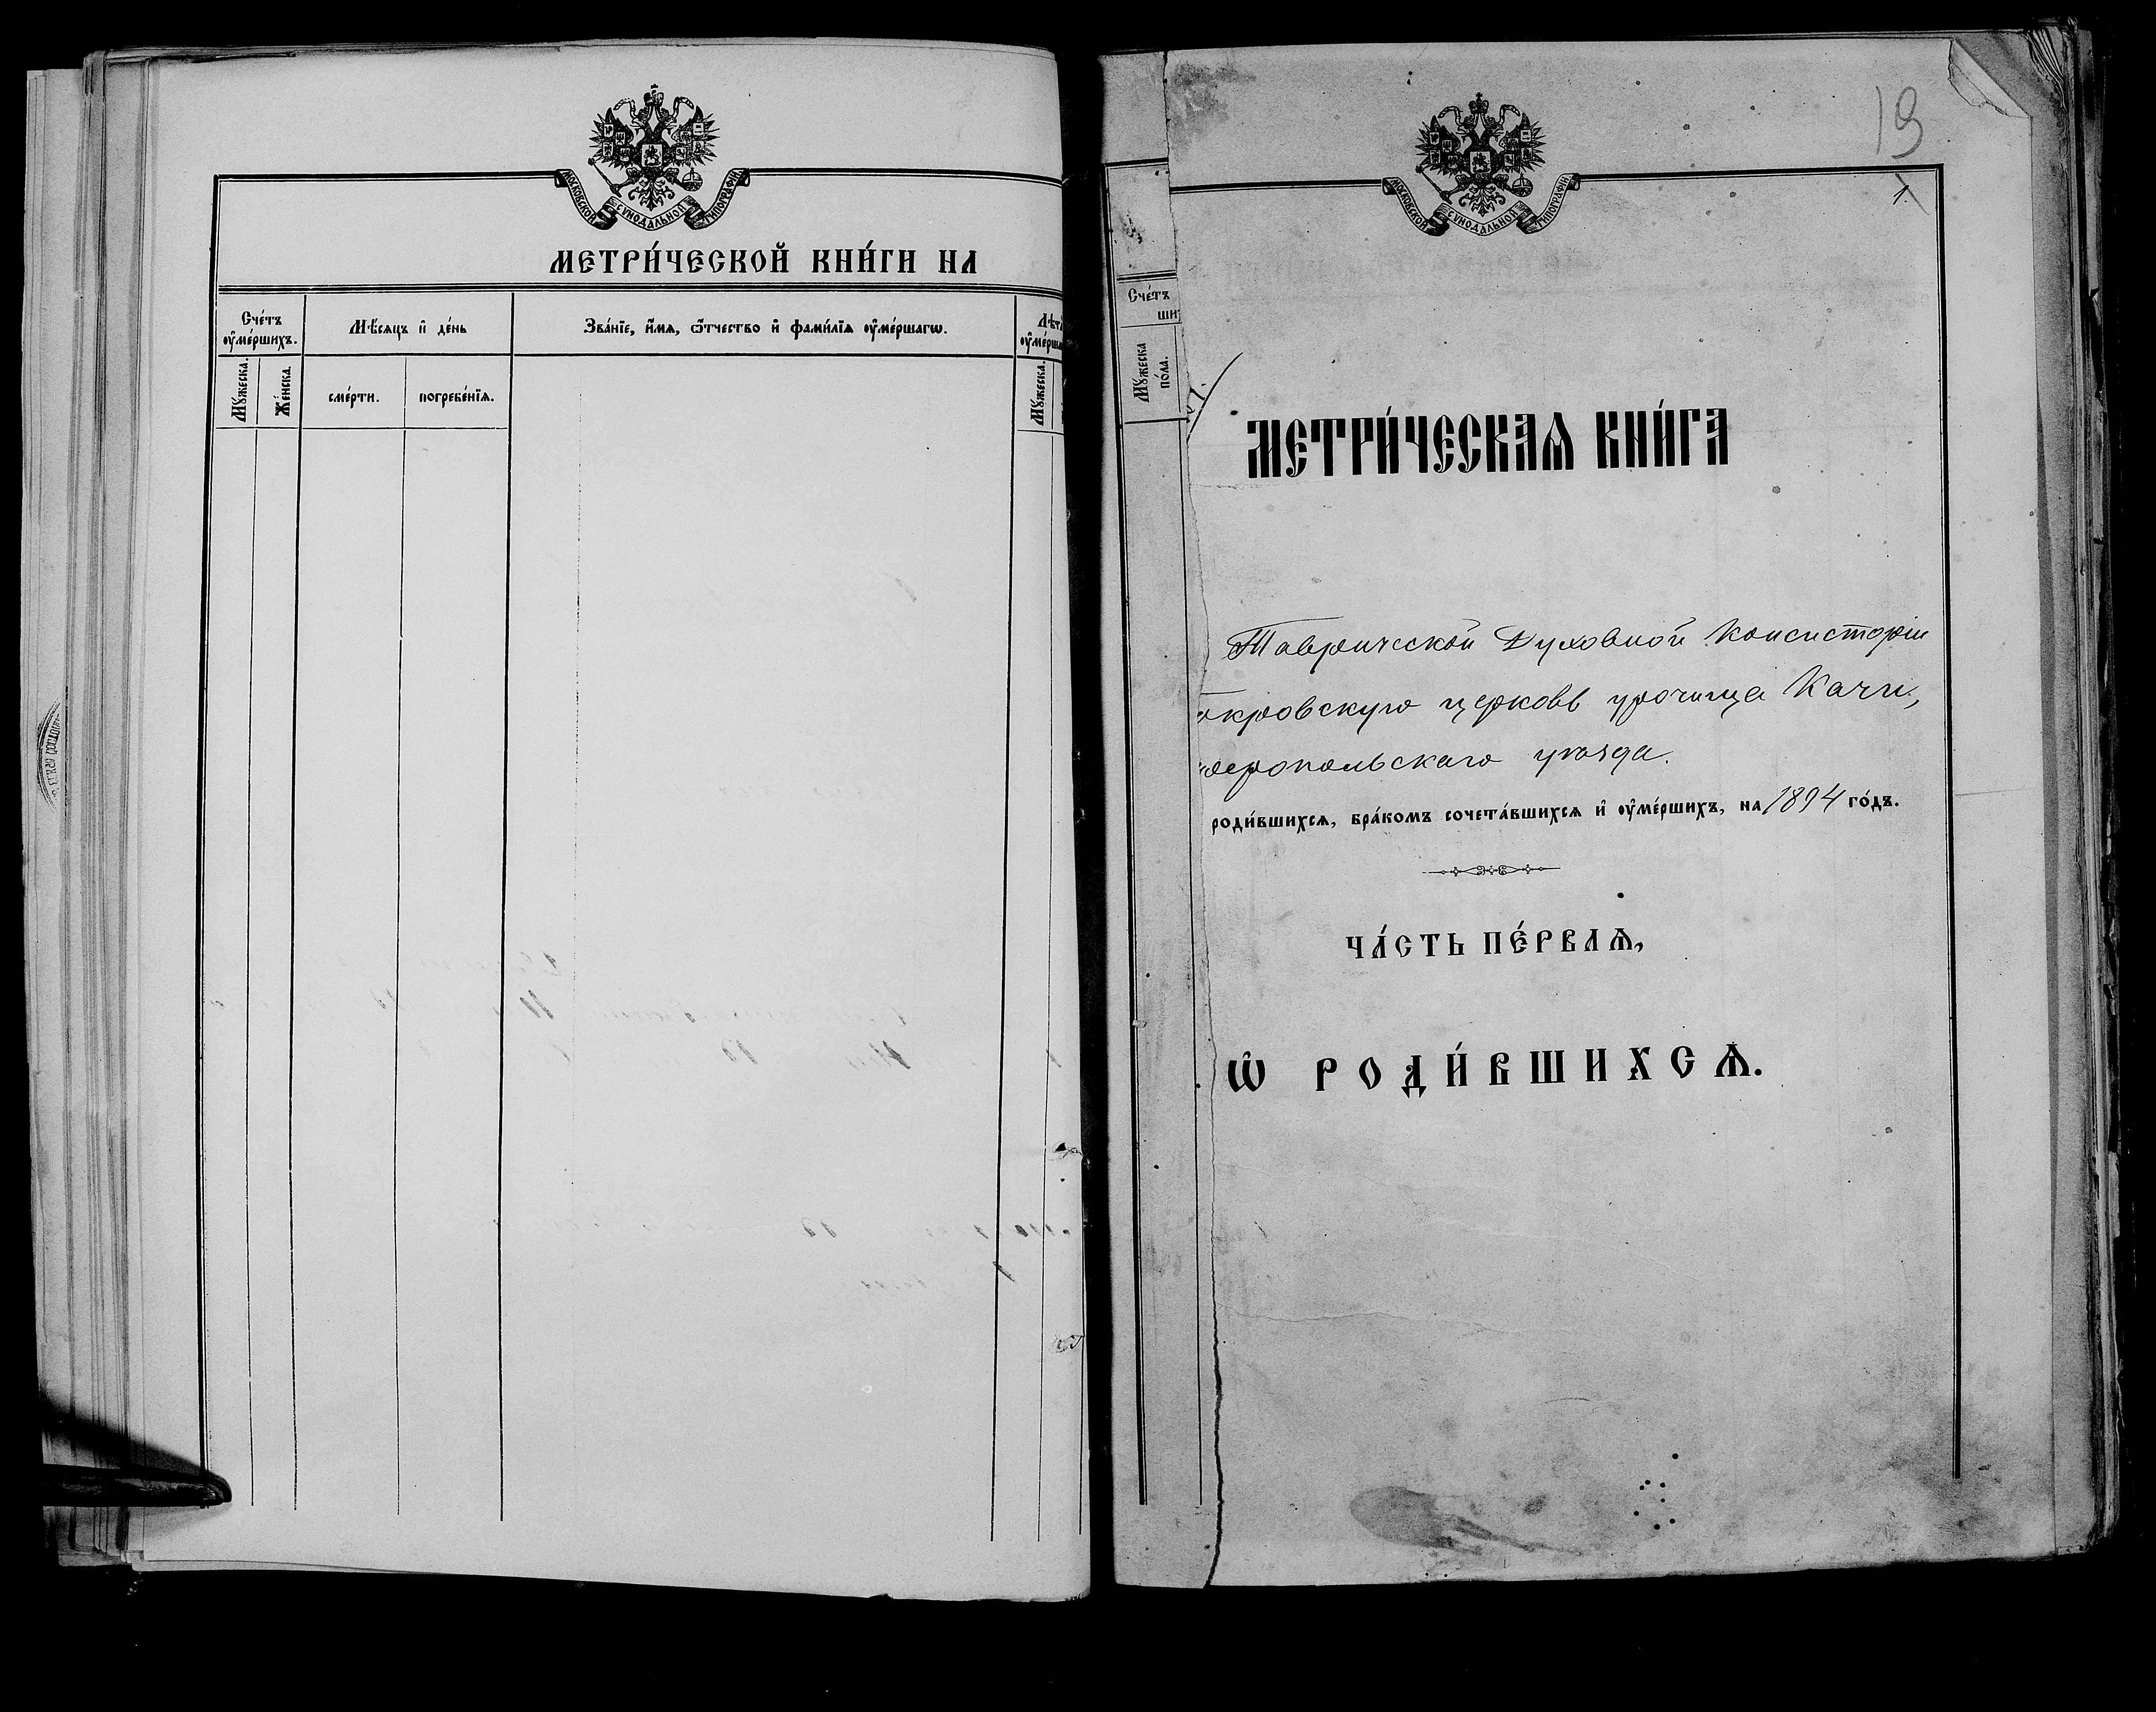 МОСКОВСКОЙ СѴНОДАЛЬНОЙ ТИПОГРАФІИ
МЕТРИ́ЧЕСКОЙ КНИ́ГИ НА
Сче́тъ ᲂу҆ме́ршихъ.
Мѣ́сяцъ и҆ де́нь
Зва́нїе, и҆́мя, ѻ҆́тчество и҆ фами́лїя ᲂу҆ме́ршагѡ.
Мꙋ́жеска.
Же́нска.
сме́рти.
погребе́нїя.
Мꙋ́жеска.
19
1.
МОСКОВСКОЙ СѴНОДАЛЬНОЙ ТИПОГРАФІИ
Сче́тъ
Мꙋ́жеска по́ла.
МЕТРИ́ЧЕСКАѦ КНИ́ГА
Таврической Духовной Консисторіи
окровскую церковь урочища Качи,
еропольскаго уѣзда.
роди́вшихся, бра́комъ сочета́вшихся и҆ ᲂу҆ме́ршихъ, на 1894 го́дъ.
ЧА́СТЬ ПЕ́РВАѦ,
Ѡ҆ РОДИ́ВШИХСѦ.